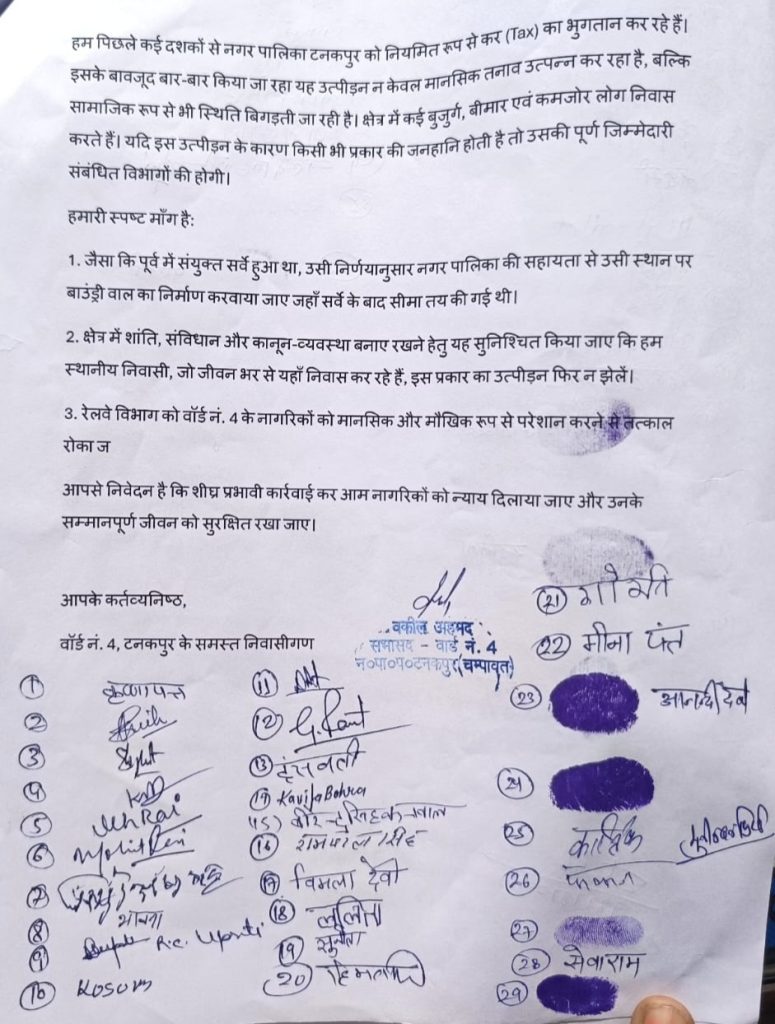 हम पिछले कई दशकों से नगर पालिका टनकपुर को नियमित रूप से कर (Tax) का भुगतान कर रहे हैं।
इसके बावजूद बार-बार किया जा रहा यह उत्पीड़न न केवल मानसिक तनाव उत्पन्न कर रहा है, बल्कि
सामाजिक रूप से भी स्थिति बिगड़ती जा रही है। क्षेत्र में कई बुजुर्ग, बीमार एवं कमजोर लोग निवास
करते हैं। यदि इस उत्पीड़न के कारण किसी भी प्रकार की जनहानि होती है तो उसकी पूर्ण जिम्मेदारी
संबंधित विभागों की होगी।
हमारी स्पष्ट माँग है:
1. जैसा कि पूर्व में संयुक्त सर्वे हुआ था, उसी निर्णयानुसार नगर पालिका की सहायता से उसी स्थान पर
बाउंड्री वाल का निर्माण करवाया जाए जहाँ सर्वे के बाद सीमा तय की गई थी।
2. क्षेत्र में शांति, संविधान और कानून-व्यवस्था बनाए रखने हेतु यह सुनिश्चित किया जाए कि हम
स्थानीय निवासी, जो जीवन भर से यहाँ निवास कर रहे हैं, इस प्रकार का उत्पीड़न फिर न झेलें।
3. रेलवे विभाग को वॉर्ड नं. 4 के नागरिकों को मानसिक और मौखिक रूप से परेशान करने से तत्काल
रोका ज
आपसे निवेदन है कि शीघ्र प्रभावी कार्रवाई कर आम नागरिकों को न्याय दिलाया जाए और उनके
सम्मानपूर्ण जीवन को सुरक्षित रखा जाए।
आपके कर्तव्यनिष्ठ,
वॉर्ड नं. 4, टनकपुर के समस्त निवासीगण
वकील अहमद
सभासद - वार्ड नं. 4
न०पा०प०टनकपुर(चम्पावत)
1
2
3
4
5
6
7
8 भावना
9 R.C. Upreti
10 KOSUM
11
12 G. Pant
13 हंसवती
14 Kavita Bohra
15)
16 रामपाल सिंह
17 विमला देवी
18 ललिता
19
20
21 गोमती
22 मीना पंत
23 आनन्दी देवी
24
25 कार्तिक
26
27
28 सेवाराम
29